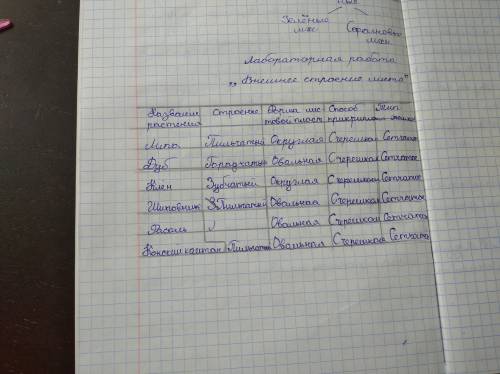 Зелёные Сфагновые
мхи мхи
Лабораторная работа
„Внешнее строение листа"
Название Строение Форма лис Способ Тип
растения товой пласт. прикрепл.
Липа Пильчатый Округлая Счерешком Сетчатое
Дуб Городчатый Овальная Счерешком Сетчатое
Клен Зубчатый Округлая Счерешком Сетчатое
Шиповник Пильчатый Овальная Счерешком Сетчатое
Фасоль Овальная Счерешком Сетчатое
Конский каштан Пильчатый Овальная Счерешком Сетчатое